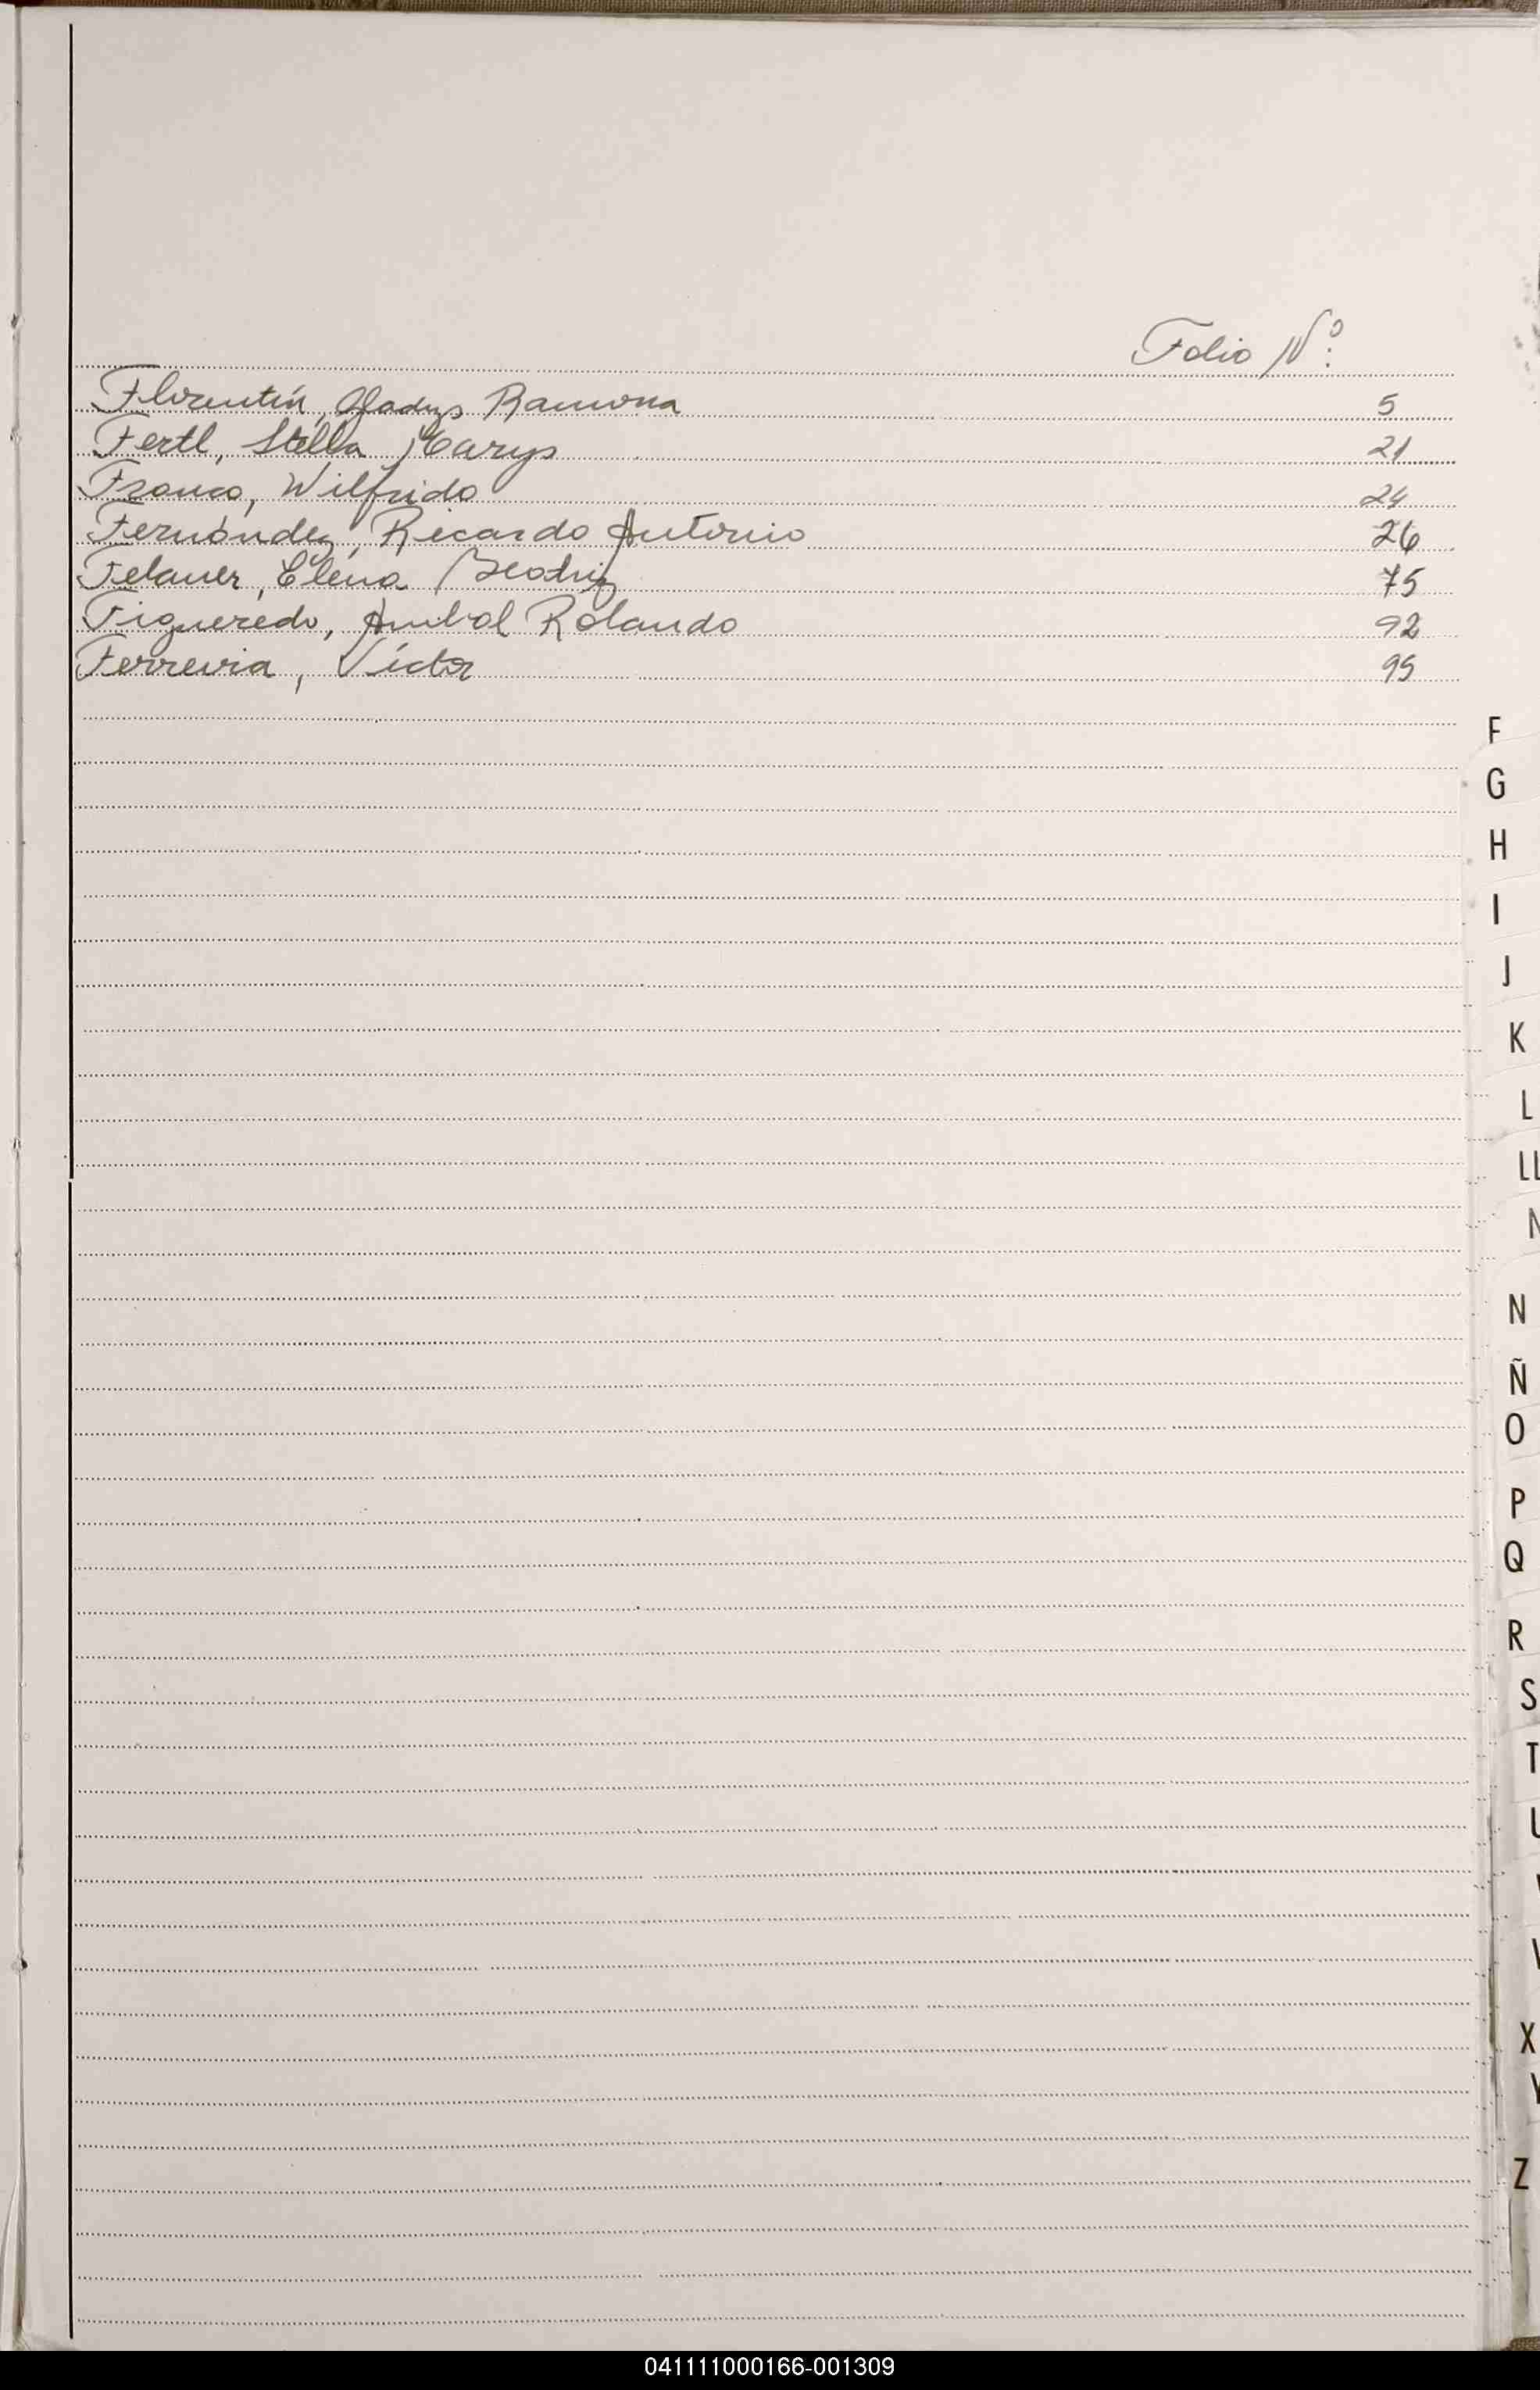 Folio Nº:
Florentín, Gladys Ramona 5
Fertl, Stella Marys 21
Franco, Wilfrido 24
Fernández, Ricardo Antonio 26
Felauer, Elena Beatriz 75
Figueredo, Anibal Rolando 92
Ferreira, Víctor 95
F
G
H
I
J
K
L
LL
N
Ñ
O
P
Q
R
S
T
U
X
Y
Z
041111000166-001309